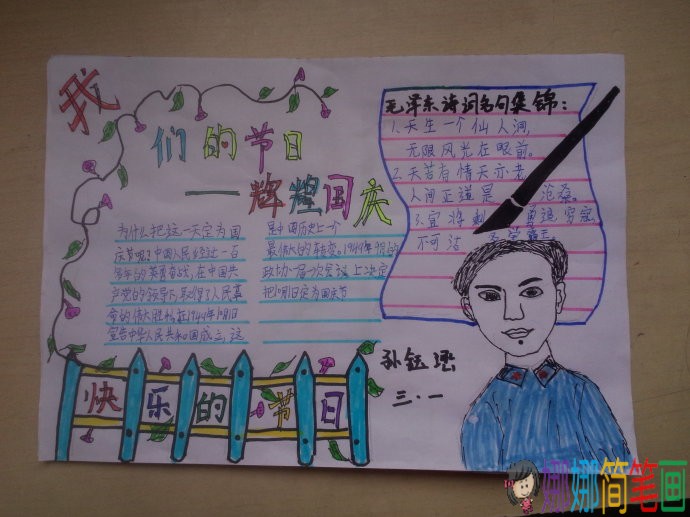 我
们的节日
——辉煌国庆
为什么把这一天定为国
庆节呢?中国人民经过一百
多年的英勇奋战,在中国共
产党的领导下,取得了人民革
命的伟大胜利,在1949年10月1日
宣告中华人民共和国成立,这
是中国历史上一个
最伟大的转变。1949年
政协一届一次会议上决定
把10月1日定为国庆节
快乐的节日
毛泽东诗词名句集锦:
1.天生一个仙人洞,
无限风光在眼前。
2.天若有情天亦老,
人间正道是沧桑。
3.宜将剩勇追穷寇,
不可沽名学霸王
孙
三·一
娜娜简笔画